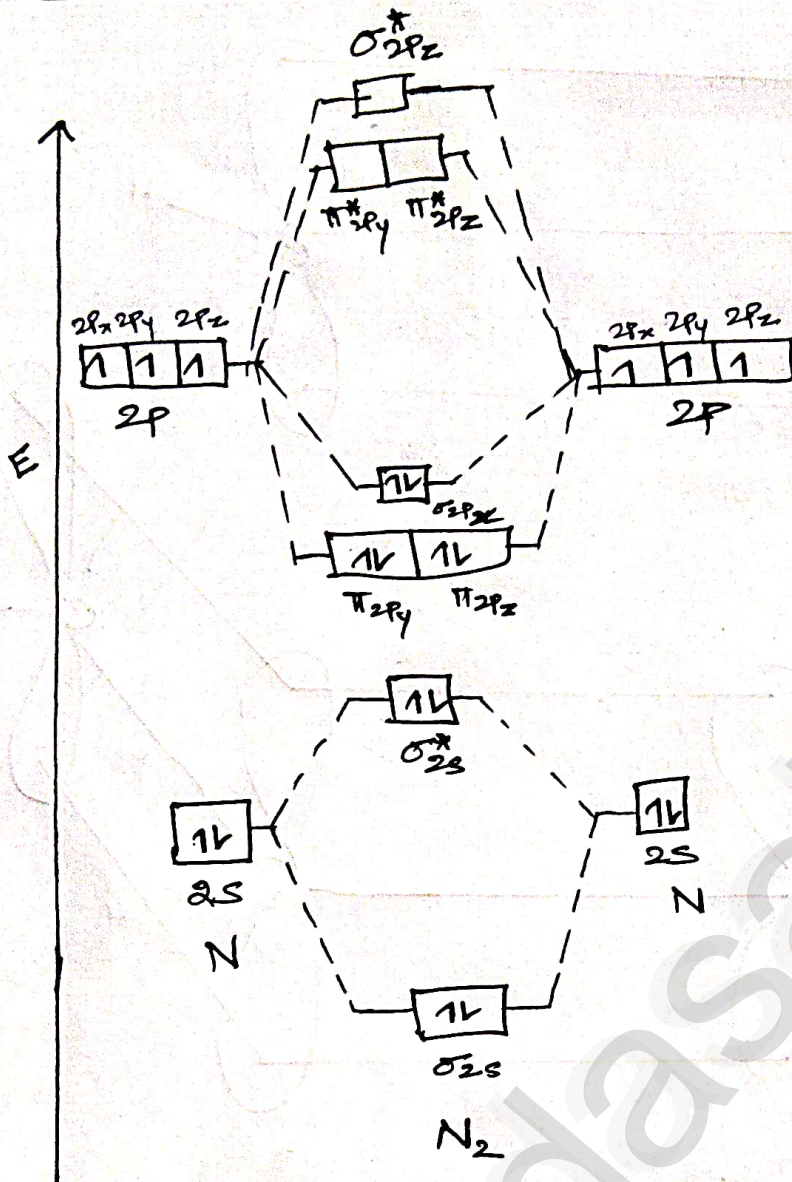 σ*2Pz
π*2Py π*2Pz
2Px 2Py 2Pz
1 1 1
2P
2Px 2Py 2Pz
1 1 1
2P
E
1L
σ2Px
1L 1L
π2Py π2Pz
1L
σ*2s
1L
2S
N
1L
2S
N
1L
σ2s
N2